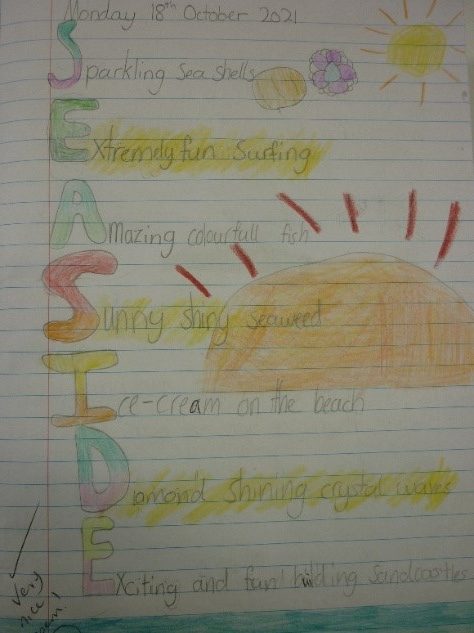 Monday 18th October 2021
Sparkling Sea shells
Extremely fun Surfing
Amazing colourfull fish
Sunny shiny seaweed
Ice-cream on the beach
Diamond shining crystal waves
Exciting and fun! building Sandcastles
Very
nice